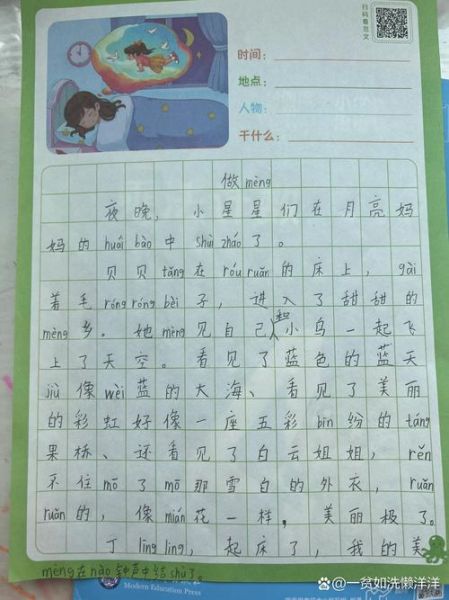 扫码看范文
时间：
地点：
人物：
干什么：
做mèng
夜晚，小星星们在月亮妈
妈的huái bào中shuì zháo了。
贝贝tǎng在róu ruǎn的床上，gài
着毛róng róng bèi子，进入了甜甜的
mèng乡。她mèng见自己和小鸟一起飞
上了天空。看见了蓝色的蓝天
jiù像wèi蓝的大海、看见了美丽
的彩虹好像一座五彩bīn纷的táng
果桥、还看见了白云姐姐，rěn
不住mō了mō那雪白的外衣，ruǎn
ruǎn的，像mián花一样，美丽极了。
丁líng líng，起床了，我的美
mèng在nào钟声中结shù了。
Modern Education Press
@一贫如洗懒洋洋